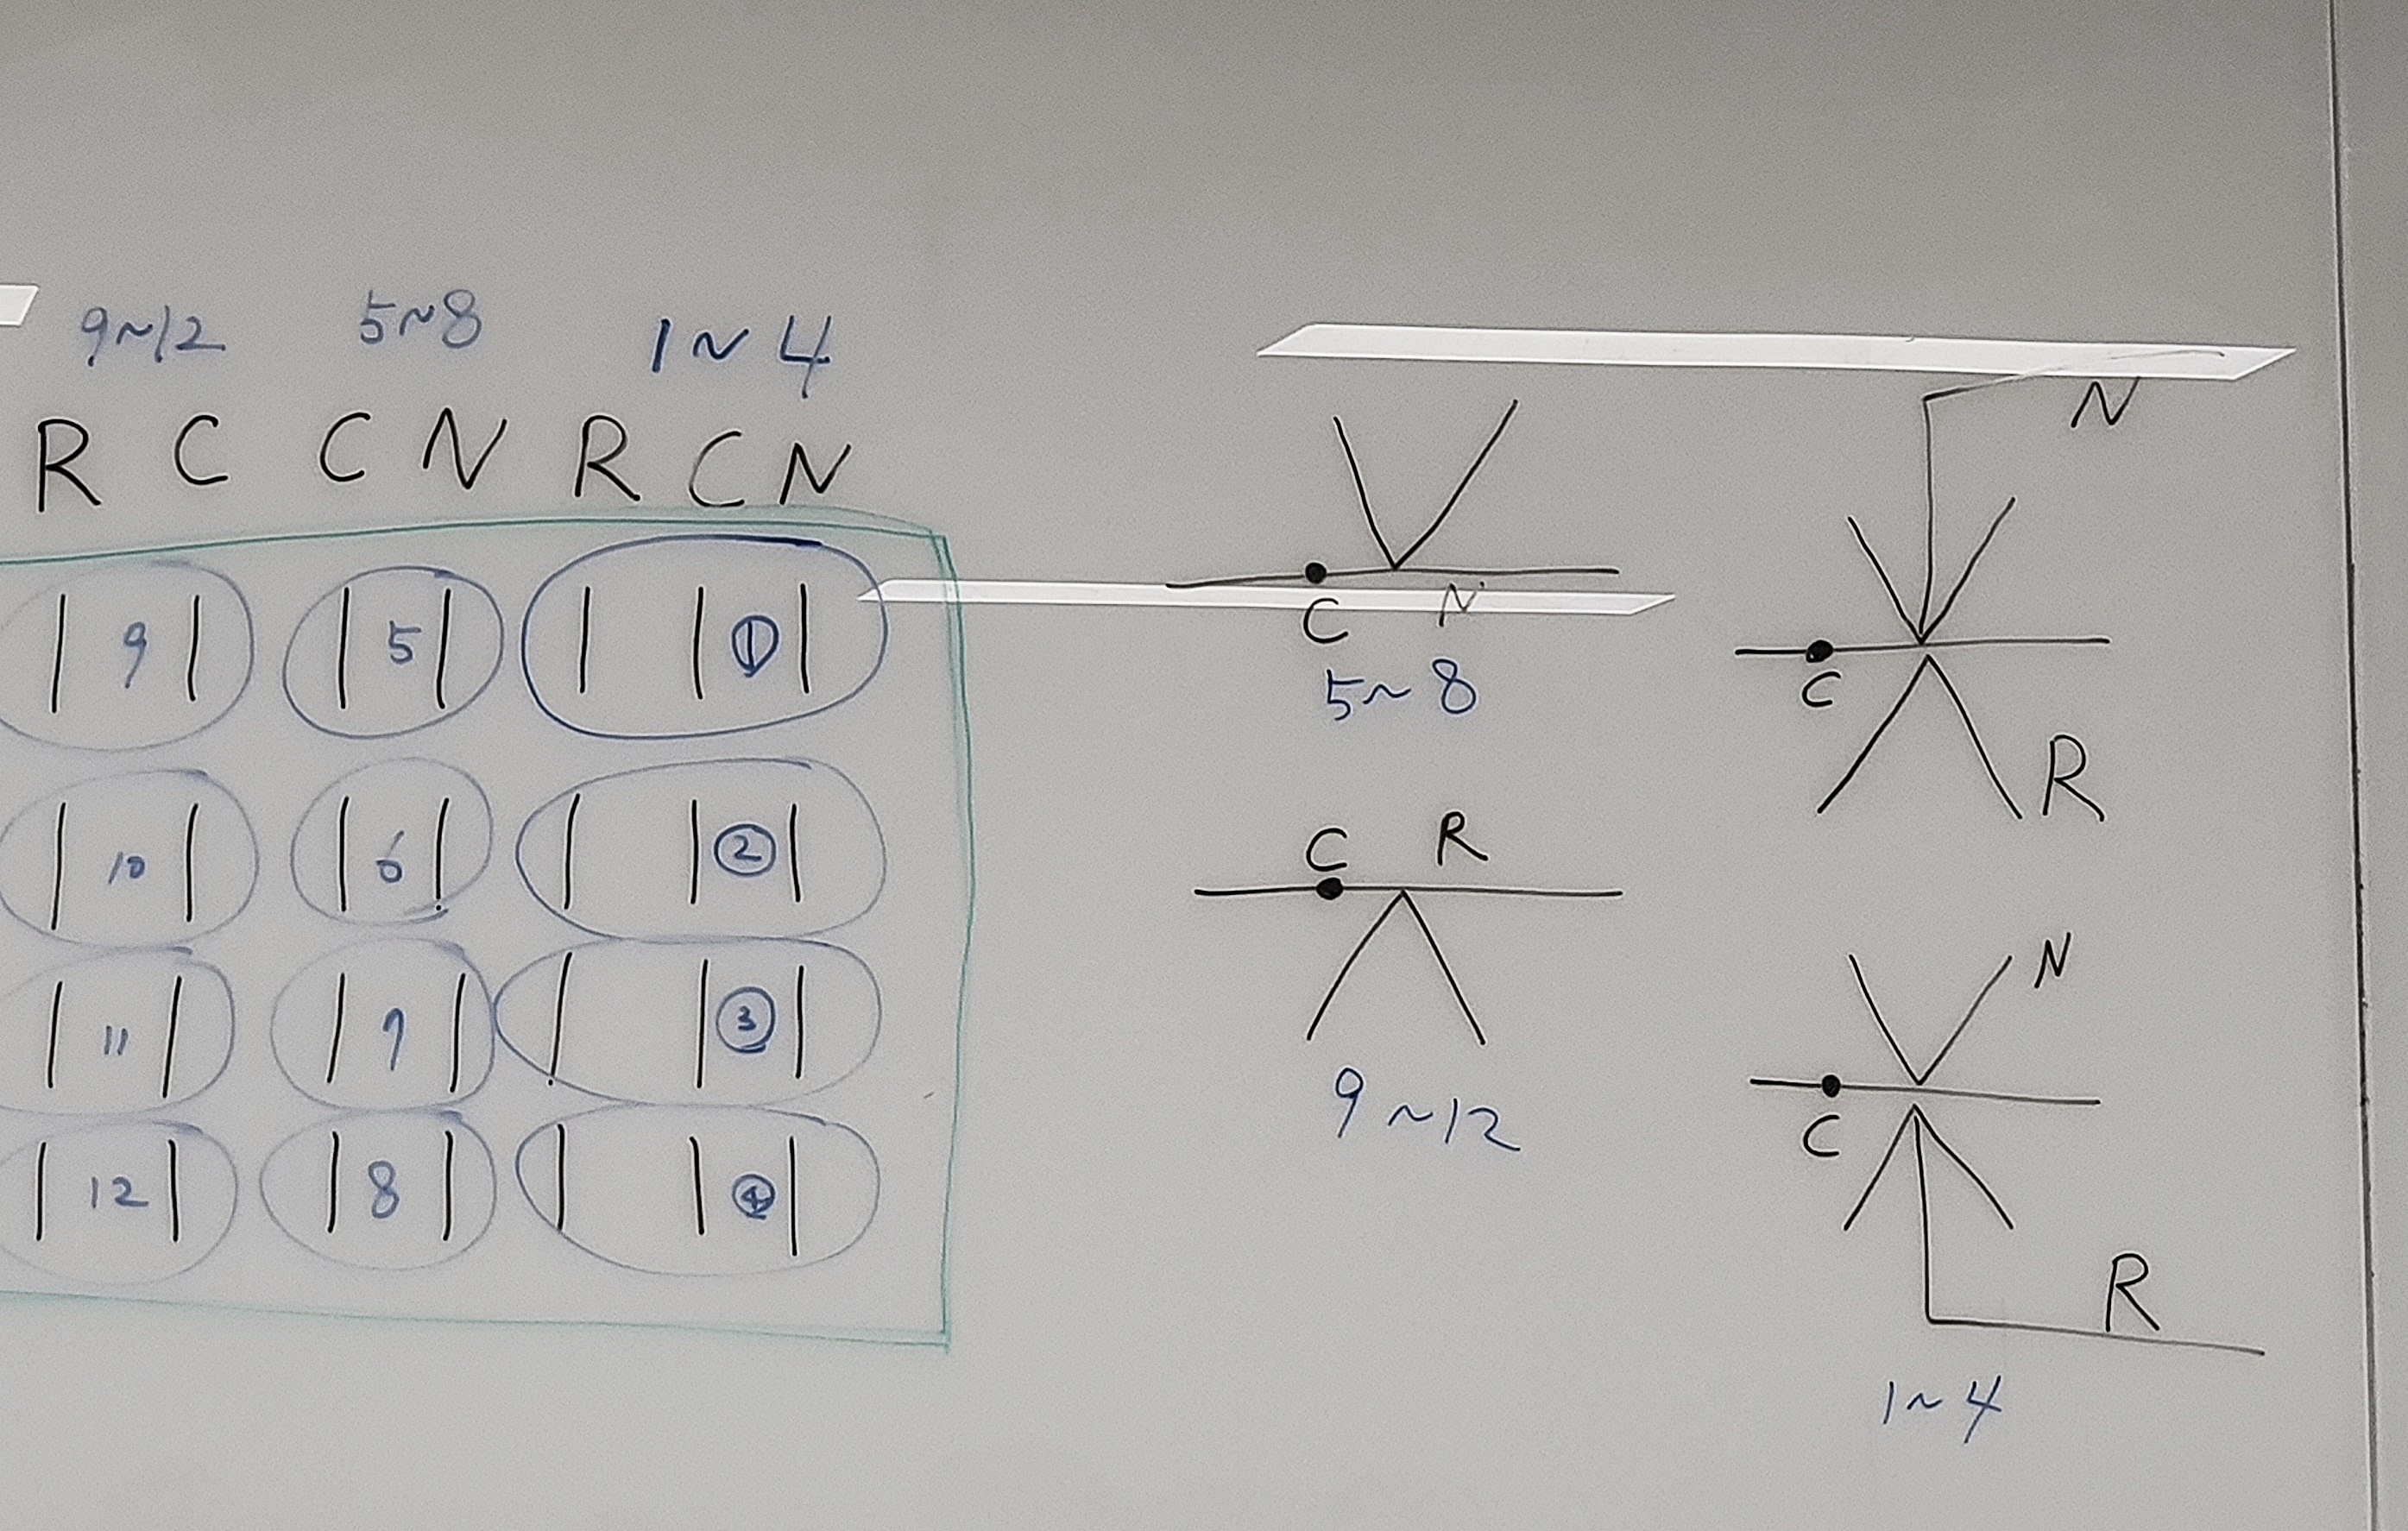 9~12 5~8 1~4
R C C N R C N
9 5 ①
10 6 ②
11 7 ③
12 8 ④
C N
5~8
C R
9~12
N
C
R
N
C
R
1~4